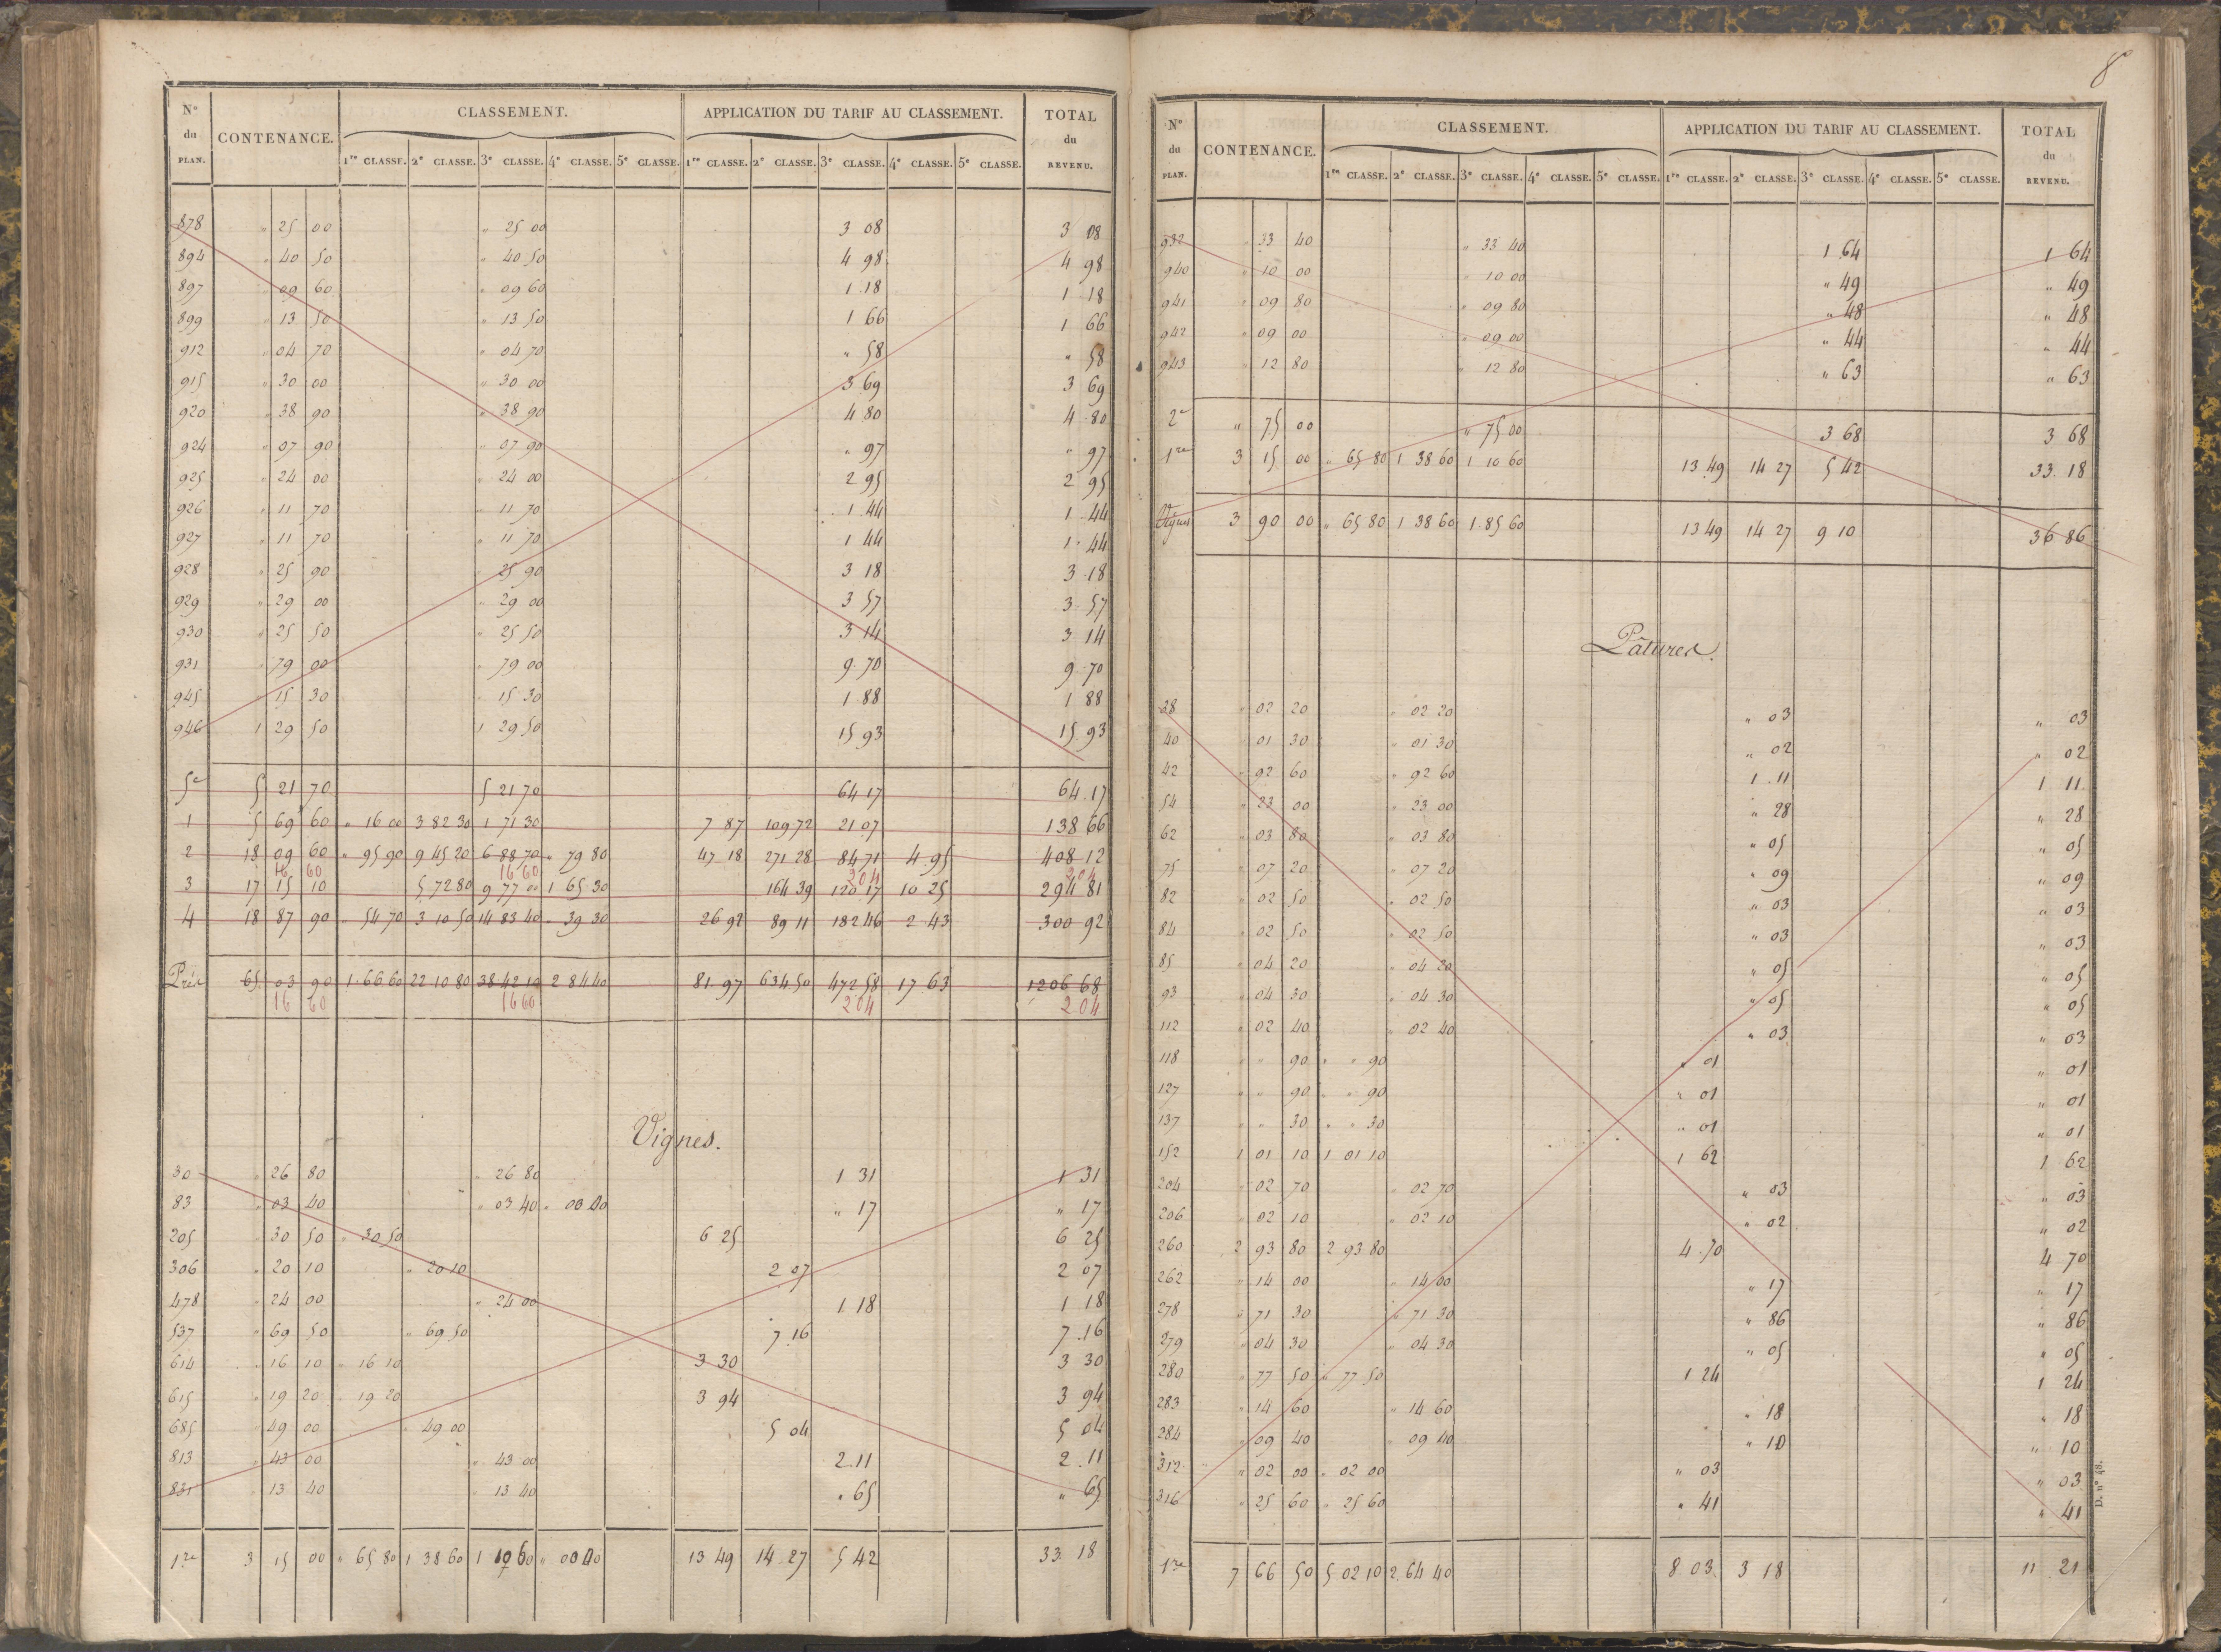 N° du PLAN. CONTENANCE. CLASSEMENT. APPLICATION DU TARIF AU CLASSEMENT. TOTAL du REVENU.
1re CLASSE. 2e CLASSE. 3e CLASSE. 4e CLASSE. 5e CLASSE. 1re CLASSE. 2e CLASSE. 3e CLASSE. 4e CLASSE. 5e CLASSE.
878 " 25 00 " 25 00 3 08 3 08
894 " 40 50 " 40 50 4 98 4 98
897 " 09 60 " 09 60 1 18 1 18
899 " 13 50 " 13 50 1 66 1 66
912 " 04 70 " 04 70 " 58 " 58
915 " 30 00 " 30 00 3 69 3 69
920 " 38 90 " 38 90 4 80 4 80
924 " 07 90 " 07 90 " 97 " 97
925 " 24 00 " 24 00 2 95 2 95
926 " 11 70 " 11 70 1 44 1 44
927 " 11 70 " 11 70 1 44 1 44
928 " 25 90 " 25 90 3 18 3 18
929 " 29 00 " 29 00 3 57 3 57
930 " 25 50 " 25 50 3 14 3 14
931 " 79 00 " 79 00 9 70 9 70
945 " 15 30 " 15 30 1 88 1 88
946 1 29 50 1 29 50 15 93 15 93
5e 5 21 70 5 21 70 64 17 64 17
1 5 69 60 " 16 00 3 82 30 1 71 30 7 87 109 72 21 07 138 66
2 18 09 60 " 95 90 9 45 20 6 88 70 " 79 80 47 18 271 28 84 71 4 95 408 12
16 60 16 60 2 04 2 04
3 17 15 10 5 72 80 9 77 00 1 65 30 164 39 120 17 10 25 294 81
4 18 87 90 " 54 70 3 10 50 14 83 40 " 39 30 26 92 89 11 182 46 2 43 300 92
Prés 65 03 90 1 66 60 22 10 80 38 42 10 2 84 40 81 97 634 50 472 58 17 63 1206 68
16 60 16 60 2 04 2 04
Vignes.
30 " 26 80 " 26 80 1 31 1 31
83 " 03 40 " 03 40 " 00 00 " 17 " 17
205 " 30 50 " 30 50 6 25 6 25
306 " 20 10 " 20 10 2 07 2 07
478 " 24 00 " 24 00 1 18 1 18
537 " 69 50 " 69 50 7 16 7 16
614 " 16 10 " 16 10 3 30 3 30
615 " 19 20 " 19 20 3 94 3 94
685 " 49 00 " 49 00 5 04 5 04
813 " 43 00 " 43 00 2 11 2 11
831 " 13 40 " 13 40 " 65 " 65
1re 3 15 00 " 65 80 1 38 60 1 10 60 " 00 00 13 49 14 27 5 42 33 18
8
N° du PLAN. CONTENANCE. CLASSEMENT. APPLICATION DU TARIF AU CLASSEMENT. TOTAL du REVENU.
1re CLASSE. 2e CLASSE. 3e CLASSE. 4e CLASSE. 5e CLASSE. 1re CLASSE. 2e CLASSE. 3e CLASSE. 4e CLASSE. 5e CLASSE.
932 " 33 40 " 33 40 1 64 1 64
940 " 10 00 " 10 00 " 49 " 49
941 " 09 80 " 09 80 " 48 " 48
942 " 09 00 " 09 00 " 44 " 44
943 " 12 80 " 12 80 " 63 " 63
2e " 75 00 " 75 00 3 68 3 68
1re 3 15 00 " 65 80 1 38 60 1 10 60 13 49 14 27 5 42 33 18
Vignes 3 90 00 " 65 80 1 38 60 1 85 60 13 49 14 27 9 10 36 86
Pâtures.
28 " 02 20 " 02 20 " 03 " 03
40 " 01 30 " 01 30 " 02 " 02
42 " 92 60 " 92 60 1 11 1 11
54 " 23 00 " 23 00 " 28 " 28
62 " 03 80 " 03 80 " 05 " 05
75 " 07 20 " 07 20 " 09 " 09
82 " 02 50 " 02 50 " 03 " 03
84 " 02 50 " 02 50 " 03 " 03
85 " 04 20 " 04 20 " 05 " 05
93 " 04 30 " 04 30 " 05 " 05
112 " 02 40 " 02 40 " 03 " 03
118 " " 90 " " 90 " 01 " 01
127 " " 90 " " 90 " 01 " 01
137 " " 30 " " 30 " 01 " 01
152 1 01 10 1 01 10 1 62 1 62
204 " 02 70 " 02 70 " 03 " 03
206 " 02 10 " 02 10 " 02 " 02
260 2 93 80 2 93 80 4 70 4 70
262 " 14 00 " 14 00 " 17 " 17
278 " 71 30 " 71 30 " 86 " 86
279 " 04 30 " 04 30 " 05 " 05
280 " 77 50 " 77 50 1 24 1 24
283 " 14 60 " 14 60 " 18 " 18
284 " 09 40 " 09 40 " 10 " 10
312 " 02 00 " 02 00 " 03 " 03
316 " 25 60 " 25 60 " 41 " 41
1re 7 66 50 5 02 10 2 64 40 8 03 3 18 11 21
D. n° 48.